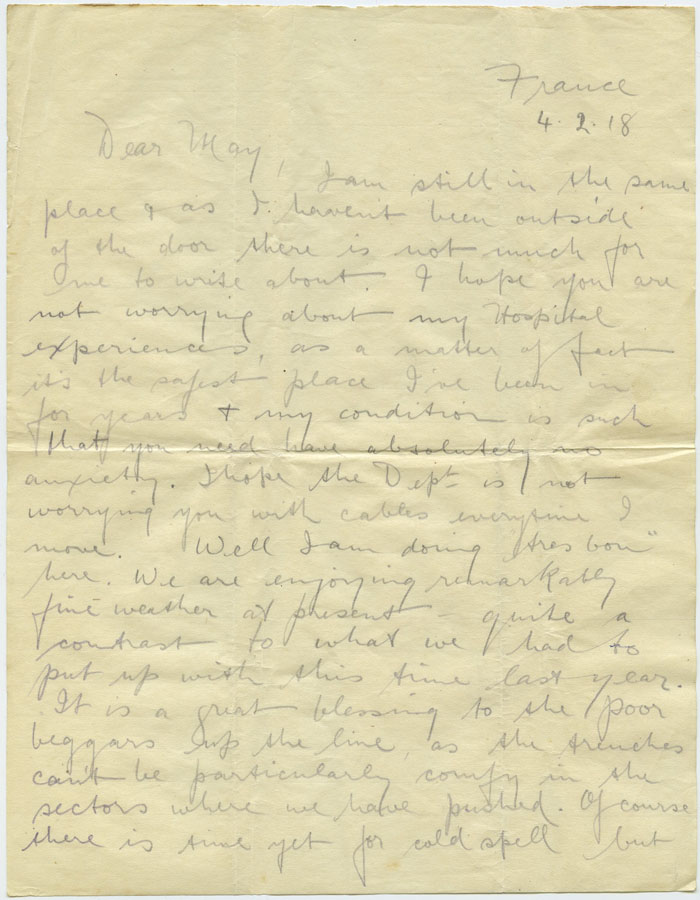 France
4.2.18
Dear May,
I am still in the same
place & as I haven't been outside
of the door there is not much for
me to write about. I hope you are
not worrying about my Hospital
experiences, as a matter of fact
it's the safest place I've been in
for years & my condition is such
that you need have absolutely no
anxiety. I hope the Dept is not
worrying you with cables everytime I
move. Well I am doing "tres bon"
here. We are enjoying remarkably
fine weather at present - quite a
contrast to what we had to
put up with this time last year.
It is a great blessing to the poor
beggars up the line, as the trenches
can't be particularly comfy in the
sectors where we have pushed. Of course
there is time yet for cold spell but